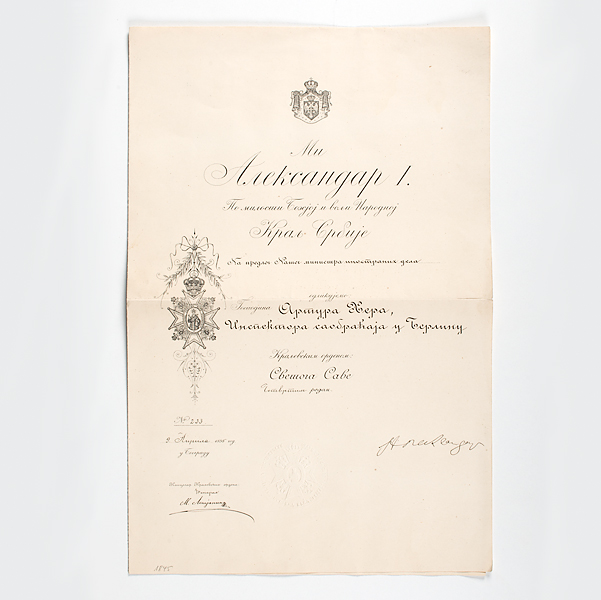 Ми
Александар I.
По милости Божјој и вољи Народној
Краљ Србије
На предлог Нашег министра иностраних дела
одликујемо
Господина Артура Хера,
Инспектора саобраћаја у Берлину
Краљевским орденом:
Светога Саве
Четвртим редом.
№ 233
9 Априла год
у Београду
Канцелар Краљевских
М.
Александар
1895